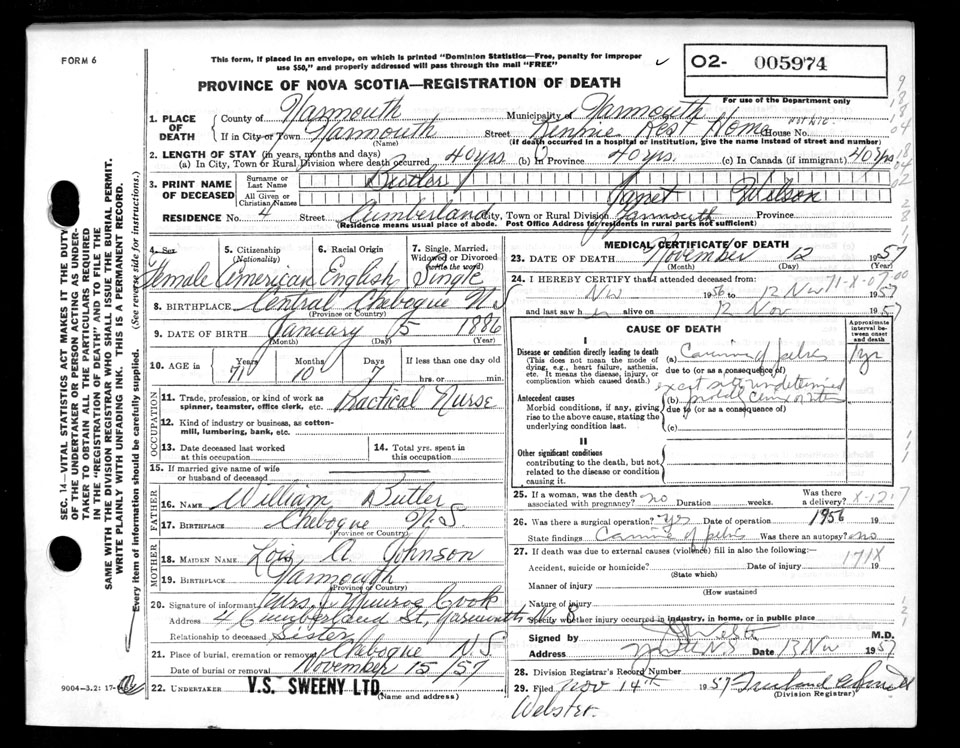 FORM 6
This form, if placed in an envelope, on which is printed "Dominion Statistics—Free, penalty for improper
use $50," and properly addressed will pass through the mail "FREE"
O2- 005974
For use of the Department only
PROVINCE OF NOVA SCOTIA—REGISTRATION OF DEATH
1. PLACE OF DEATH
County of Yarmouth Municipality of Yarmouth
If in City or Town Yarmouth (Name) Street Rest Home House No.
(If death occurred in a hospital or institution, give the name instead of street and number)
2. LENGTH OF STAY (in years, months and days)
(a) In City, Town or Rural Division where death occurred 40 yrs (b) In Province 40 yrs. (c) In Canada (if immigrant) 40 yrs
3. PRINT NAME OF DECEASED
Surname or Last Name Butler
All Given or Christian Names Janet Wilson
RESIDENCE No. 4 Street Cumberland City, Town or Rural Division Yarmouth Province
(Residence means usual place of abode. Post Office Address for residents in rural parts not sufficient)
4. Sex Female
5. Citizenship (Nationality) American
6. Racial Origin English
7. Single, Married, Widowed or Divorced (write the word) Single
8. BIRTHPLACE Central Chebogue N.S
(Province or Country)
9. DATE OF BIRTH January 5 1886
(Month) (Day) (Year)
10. AGE in Years 71 Months 10 Days 7 If less than one day old hrs. or min.
OCCUPATION
11. Trade, profession, or kind of work as spinner, teamster, office clerk, etc. Practical Nurse
12. Kind of industry or business, as cotton-mill, lumbering, bank, etc.
13. Date deceased last worked at this occupation
14. Total yrs. spent in this occupation
15. If married give name of wife or husband of deceased
FATHER
16. NAME William Butler
17. BIRTHPLACE Chebogue N.S.
(Province or Country)
MOTHER
18. MAIDEN NAME Lois A. Johnson
19. BIRTHPLACE Yarmouth
(Province or Country)
20. Signature of informant Mrs. J. Munroe Cook
Address 4 Cumberland St, Yarmouth N.S
Relationship to deceased Sister
21. Place of burial, cremation or removal Chebogue N.S
Date of burial or removal November 15/57
22. UNDERTAKER V.S. SWEENY LTD.
(Name and address)
9004-3.2: 17-
MEDICAL CERTIFICATE OF DEATH
23. DATE OF DEATH November 12 1957
(Month) (Day) (Year)
24. I HEREBY CERTIFY that I attended deceased from:
Nov 1956 to 12 Nov 1957
71-X-07 00
and last saw her alive on 12 Nov 1957
CAUSE OF DEATH
Approximate interval between onset and death
I
Disease or condition directly leading to death
(This does not mean the mode of dying, e.g., heart failure, asthenia, etc. It means the disease, injury, or complication which caused death.)
(a) of pelvis 1 yr
due to (or as a consequence of)
exact site undetermined
Antecedent causes
Morbid conditions, if any, giving rise to the above cause, stating the underlying condition last.
(b)
due to (or as a consequence of)
(c)
II
Other significant conditions
contributing to the death, but not related to the disease or condition causing it.
25. If a woman, was the death associated with pregnancy? no Duration weeks. Was there a delivery? X-12-7
26. Was there a surgical operation? yes Date of operation 1956 19
State findings of pelvis Was there an autopsy? no
27. If death was due to external causes (violence) fill in also the following:—
171X
Accident, suicide or homicide? Date of injury 19
(State which)
Manner of injury
(How sustained)
Nature of injury
Specify whether injury occurred in industry, in home, or in public place
Signed by M.D.
Address Date 13 Nov 1957
28. Division Registrar's Record Number
29. Filed Nov 14th 1957
(Division Registrar)
Webster.
SEC. 14—VITAL STATISTICS ACT MAKES IT THE DUTY
OF THE UNDERTAKER OR PERSON ACTING AS UNDER-
TAKER TO OBTAIN ALL THE PARTICULARS REQUIRED
IN THE "REGISTRATION OF DEATH" AND TO FILE THE
SAME WITH THE DIVISION REGISTRAR WHO SHALL ISSUE THE BURIAL PERMIT.
WRITE PLAINLY WITH UNFADING INK. THIS IS A PERMANENT RECORD.
Every item of information should be carefully supplied. (See reverse side for instructions.)